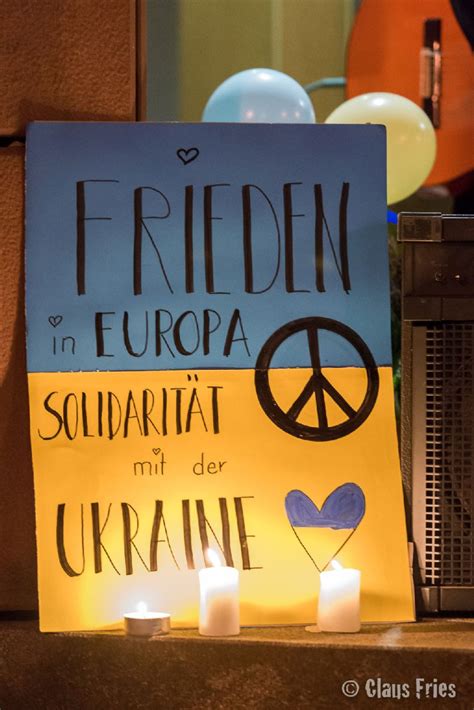 FRIEDEN
in EUROPA
SOLIDARITÄT
mit der
UKRAINE
© Claus Fries